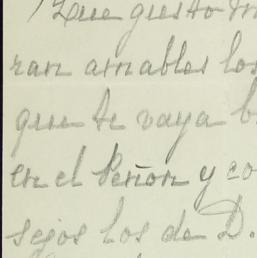 Que gusto
ran amables los
que te vaya b
en el Peñon y co
sejos los de D.